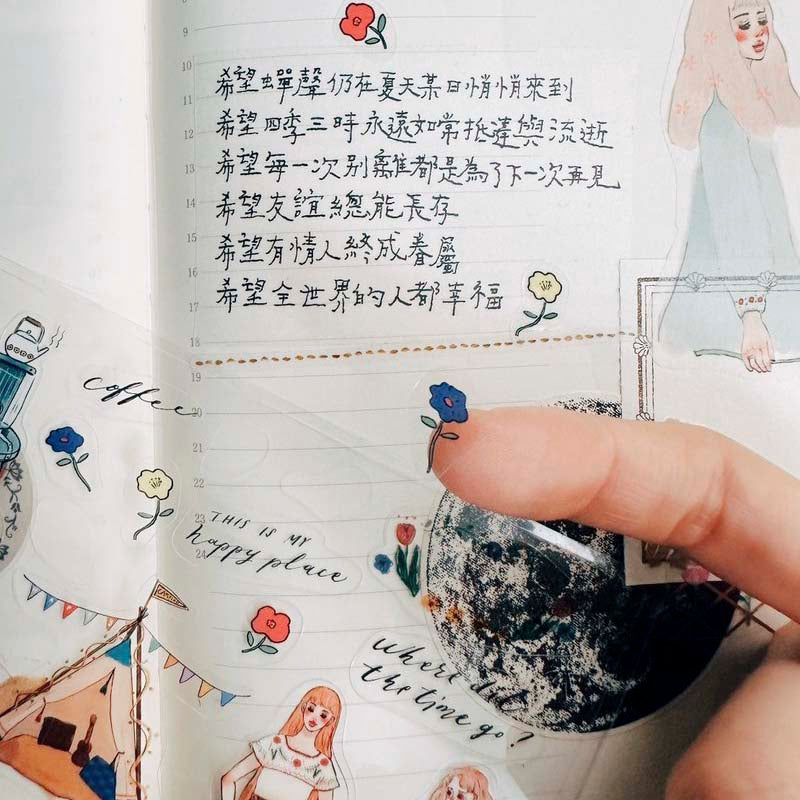 希望蟬聲仍在夏天某日悄悄來到
希望四季三時永遠如常抵達與流逝
希望每一次別離都是為了下一次再見
希望友誼總能長存
希望有情人終成眷屬
希望全世界的人都幸福
9
10
11
12
13
14
15
16
17
18
19
20
21
22
23
24
coffee
THIS IS MY
happy place
Where did
the time go?